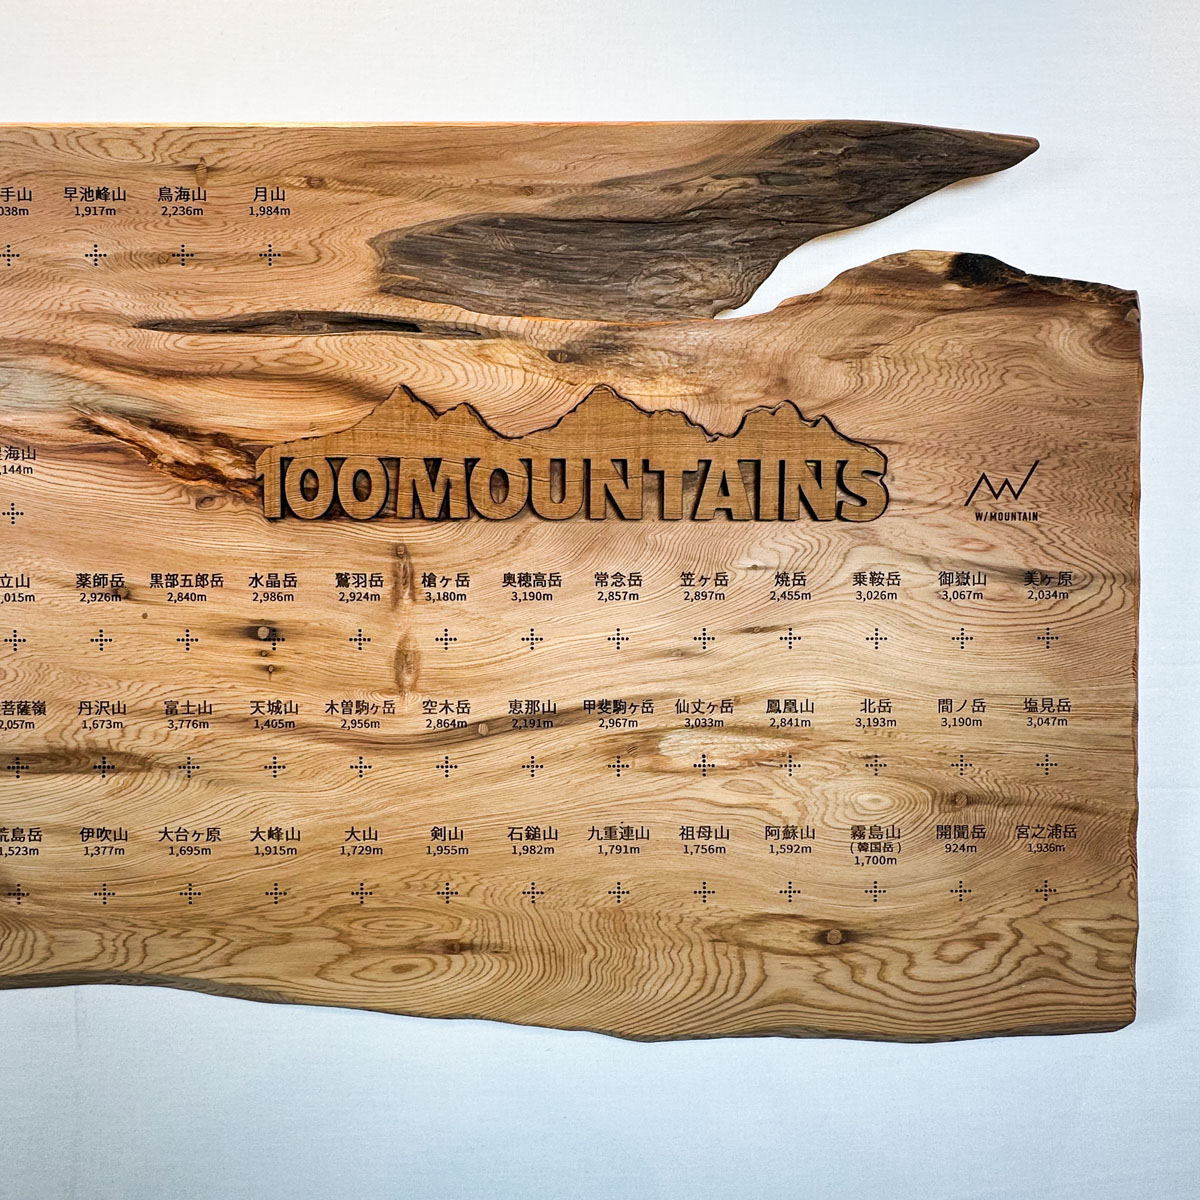 手山 早池峰山 鳥海山 月山
038m 1,917m 2,236m 1,984m
海山
,144m
100MOUNTAINS
W/MOUNTAIN
立山 薬師岳 黒部五郎岳 水晶岳 鷲羽岳 槍ヶ岳 奥穂高岳 常念岳 笠ヶ岳 焼岳 乗鞍岳 御嶽山 美ヶ原
,015m 2,926m 2,840m 2,986m 2,924m 3,180m 3,190m 2,857m 2,897m 2,455m 3,026m 3,067m 2,034m
菩薩嶺 丹沢山 富士山 天城山 木曽駒ヶ岳 空木岳 恵那山 甲斐駒ヶ岳 仙丈ヶ岳 鳳凰山 北岳 間ノ岳 塩見岳
2,057m 1,673m 3,776m 1,405m 2,956m 2,864m 2,191m 2,967m 3,033m 2,841m 3,193m 3,190m 3,047m
荒島岳 伊吹山 大台ヶ原 大峰山 大山 剣山 石鎚山 九重連山 祖母山 阿蘇山 霧島山 開聞岳 宮之浦岳
(韓国岳)
1,523m 1,377m 1,695m 1,915m 1,729m 1,955m 1,982m 1,791m 1,756m 1,592m 1,700m 924m 1,936m